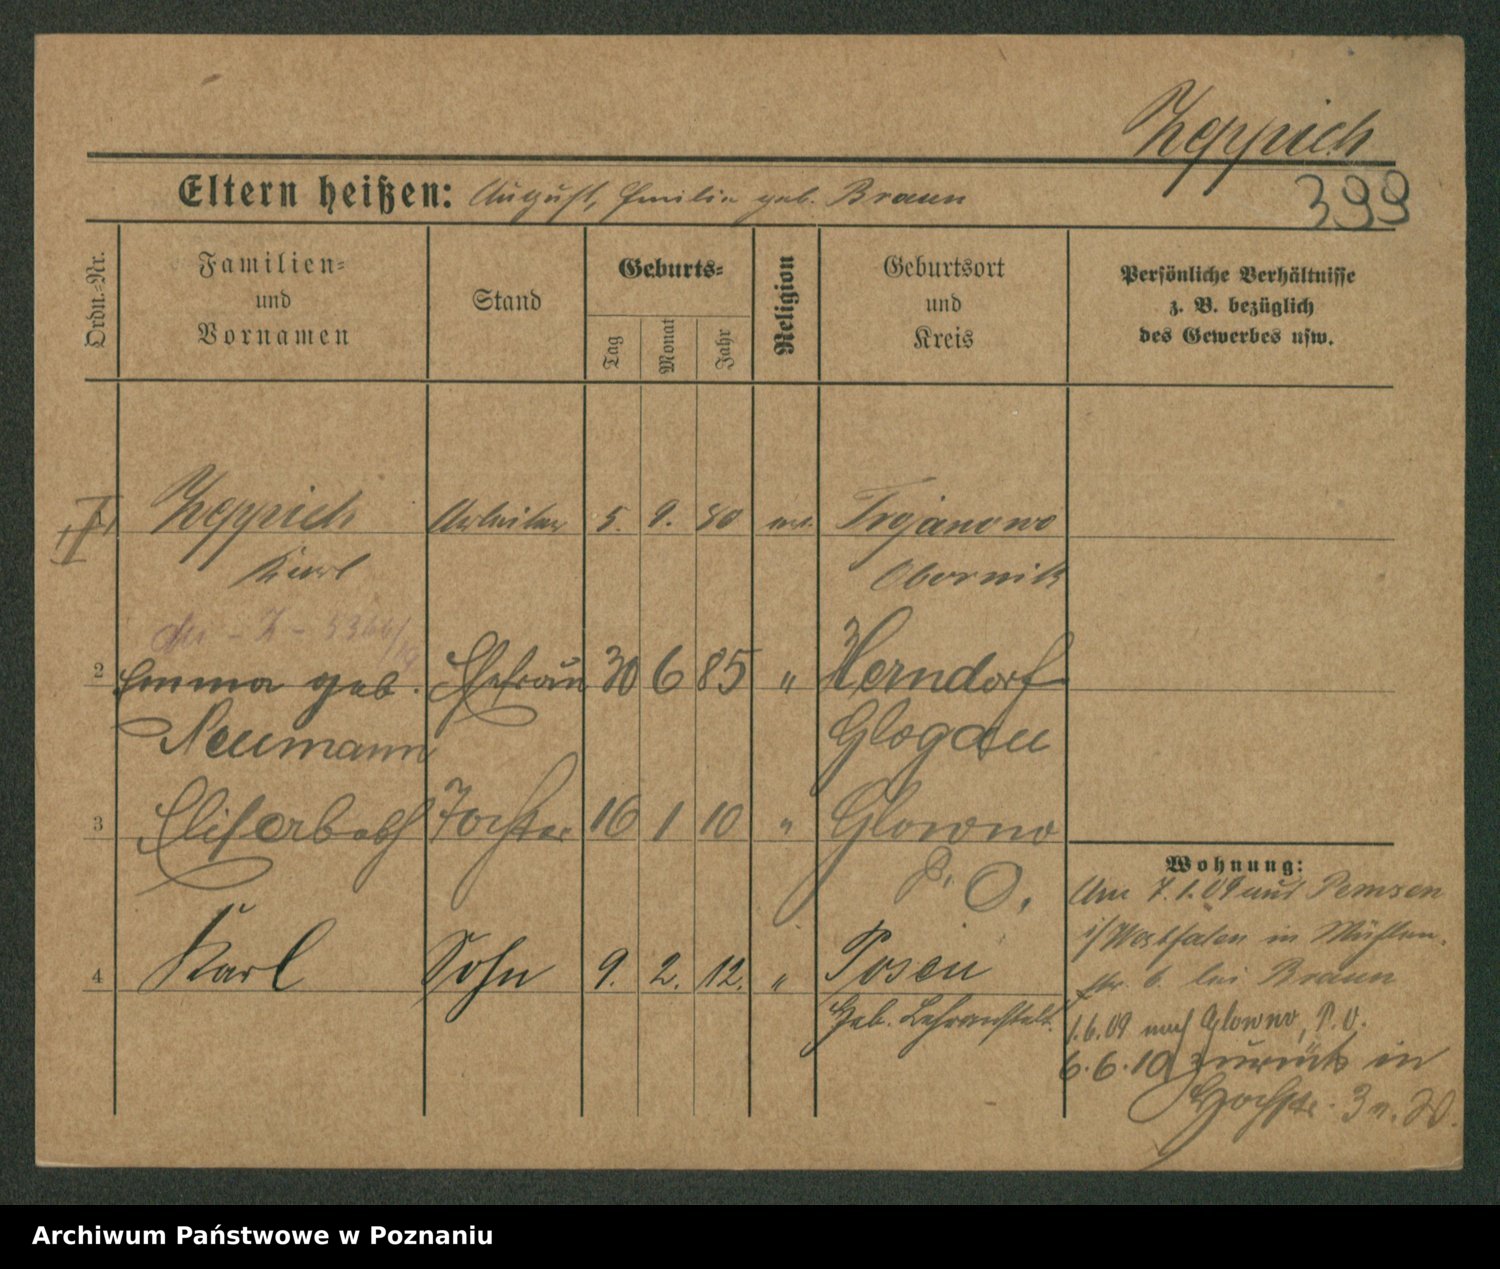 Zeppich
399
Eltern heißen: August, Emilie geb. Braun
Ordn.-Nr.
Familien-
und
Vornamen
Stand
Geburts-
Tag
Monat
Jahr
Religion
Geburtsort
und
Kreis
Persönliche Verhältnisse
z. B. bezüglich
des Gewerbes usw.
Zeppich Arbeiter 5. 9. 80 ev. Trojanowo
Karl Obornik
2 Emma geb. Ehefrau 30 6 85 " Herndorf
Neumann Glogau
3 Elisabeth Tochter 16 1 10 " Glowno
P. O.
4 Karl Sohn 9. 2. 12. " Posen
Geb. Lehranstalt.
Wohnung:
Am 7.1.09 aus
i/Westfalen in Mühlen-
str. 6. bei Braun
1.6.09 nach Glowno, P. O.
6.6.10 zurück in
3